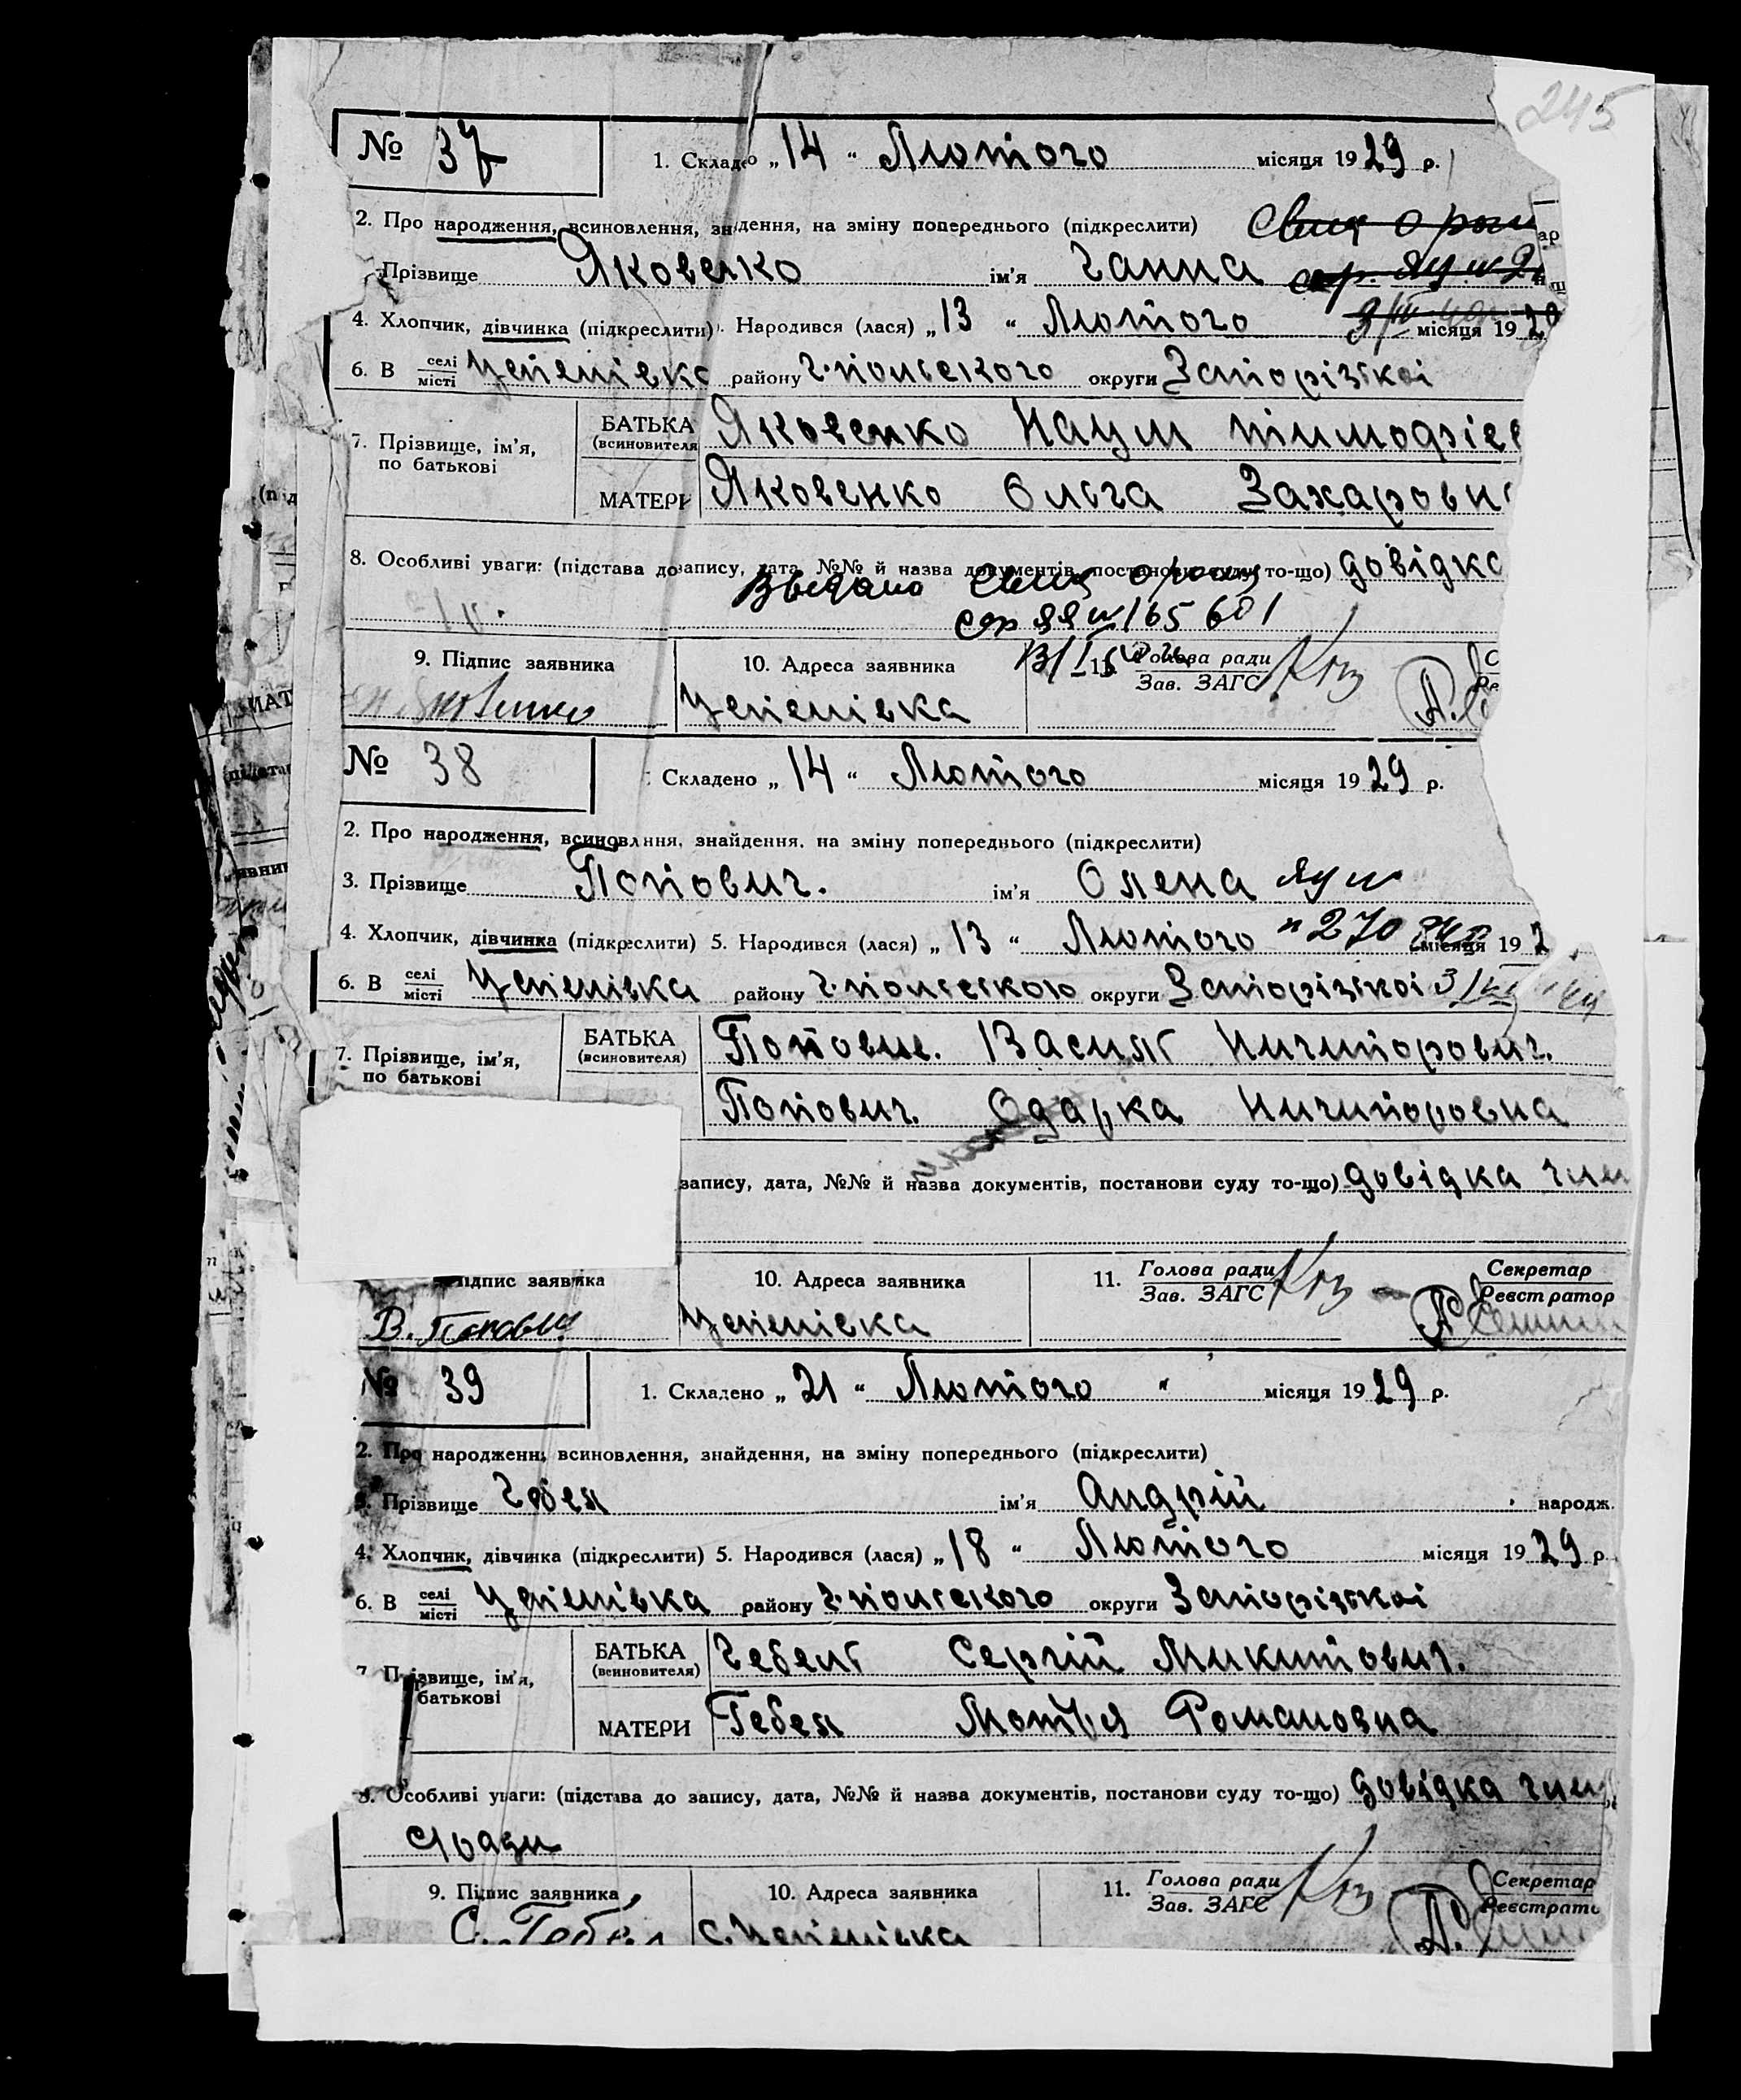 245
№ 37
1. Складено „ 14 “ Лютого місяця 19 29 р.
2. Про народження, всиновлення, знайдення, на зміну попереднього (підкреслити)
Прізвище Яковенко ім’я Ганна
4. Хлопчик, дівчинка (підкреслити). Народився (лася) „ 13 “ Лютого місяця 19
6. В селі місті району округи Запорізької
7. Прізвище, ім’я, по батькові
БАТЬКА (всиновителя Яковенко Наум
МАТЕРИ Яковенко Ольга
8. Особливі уваги: (підстава до запису, дата, №№ й назва документів, постанови суду то-що)
165 601
9. Підпис заявника 10. Адреса заявника 11. Голова ради
Зав. ЗАГС
№ 38
Складено „ 14 “ Лютого місяця 19 29 р.
2. Про народження, всиновлння, знайдення, на зміну попереднього (підкреслити)
3. Прізвище Попович. ім’я Олена
4. Хлопчик, дівчинка (підкреслити) 5. Народився (лася) „ 13 “ Лютого № 270 місяця 19
6. В селі місті району округи Запорізької
7. Прізвище, ім’я, по батькові
БАТЬКА (всиновителя) Попович. Василь Ничипорович.
Попович. Одарка Ничипоровна
запису, дата, №№ й назва документів, постанови суду то-що) довідка
підпис заявника 10. Адреса заявника 11. Голова ради Секретар
Зав. ЗАГС Реєстратор
В. Попович
№ 39
1. Складено „ 21 “ Лютого “ місяця 19 29 р.
2. Про народженн, всиновлення, знайдення, на зміну попереднього (підкреслити)
3. Прізвище Гебел ім’я Андрій народж.
4. Хлопчик, дівчинка (підкреслити) 5. Народився (лася) „ 18 “ Лютого місяця 19 29 р.
6. В селі місті району округи Запорізької
7. Прізвище, ім’я, батькові
БАТЬКА (всиновителя) Гебель Сергій Микитович.
МАТЕРИ Гебел Мотря Романовна
8. Особливі уваги: (підстава до запису, дата, №№ й назва документів, постанови суду то-що) довідка
с/ради
9. Підпис заявника 10. Адреса заявника 11. Голова ради Секретар
Зав. ЗАГС Реєстрато
С. Гебел